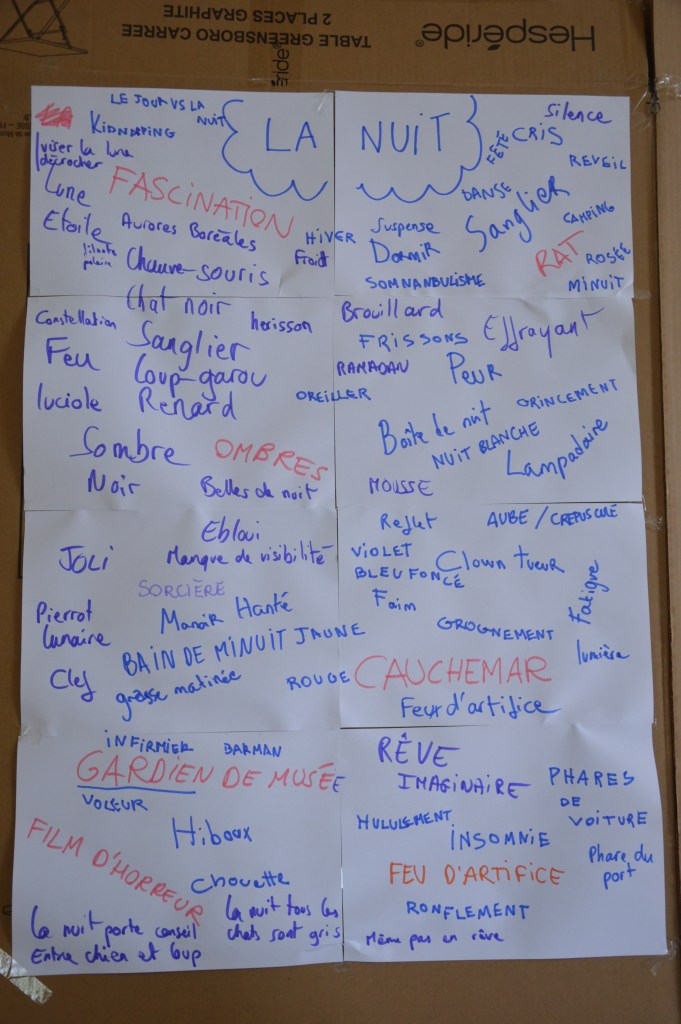 Hespéride®
TABLE GREENSBORO CARREE
2 PLACES GRAPHITE
LE JOUR VS LA
NUIT
KIDNAPING
viser la lune
décrocher
LA NUIT
Silence
FÊTE
CRIS
REVEIL
Lune
FASCINATION
DANSE
Sanglier
CAMPING
Etoile
Aurores Boréales
HIVER
Froid
Suspense
Dormir
RAT
ROSÉE
Chauve-souris
SOMNANBULISME
MINUIT
Chat noir
Constellation
herisson
Brouillard
Sanglier
FRISSONS
Effrayant
Feu
Loup-garou
RAMADAN
Peur
luciole
Renard
OREILLER
GRINCEMENT
Boîte de nuit
NUIT BLANCHE
Lampadaire
Sombre
OMBRES
Noir
Belles de nuit
MOUSSE
Ebloui
Reflet
AUBE / CREPUSCULE
JOLI
Manque de visibilité
VIOLET
BLEU FONCÉ
Clown tueur
SORCIÈRE
Faim
Fatigue
Pierrot
lunaire
Manoir Hanté
GROGNEMENT
BAIN DE MINUIT
JAUNE
lumière
Clef
grasse matinée
ROUGE
CAUCHEMAR
Feux d'artifice
INFIRMIER
BARMAN
RÊVE
GARDIEN DE MUSÉE
IMAGINAIRE
PHARES
DE
VOITURE
VOLEUR
HULULEMENT
Hiboux
INSOMNIE
FILM D'HORREUR
Phare du
port
Chouette
FEU D'ARTIFICE
La nuit tous les
chats sont gris
RONFLEMENT
La nuit porte conseil
Entre chien et loup
Même pas en rêve